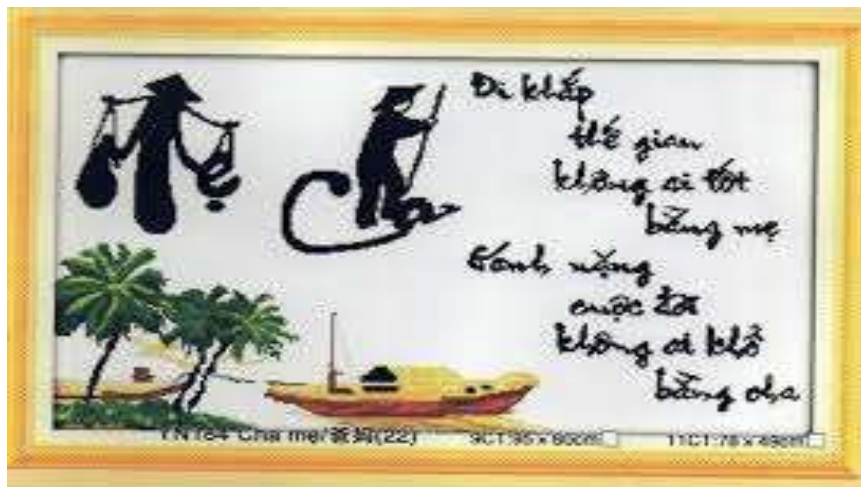 Mẹ
Cha
Đi khắp
thế gian
không ai tốt
bằng mẹ
Gánh nặng
cuộc đời
không ai khổ
bằng cha
YN184 Cha mẹ/爸妈(22) 9CT:95 x 60cm 11CT:78 x 49cm